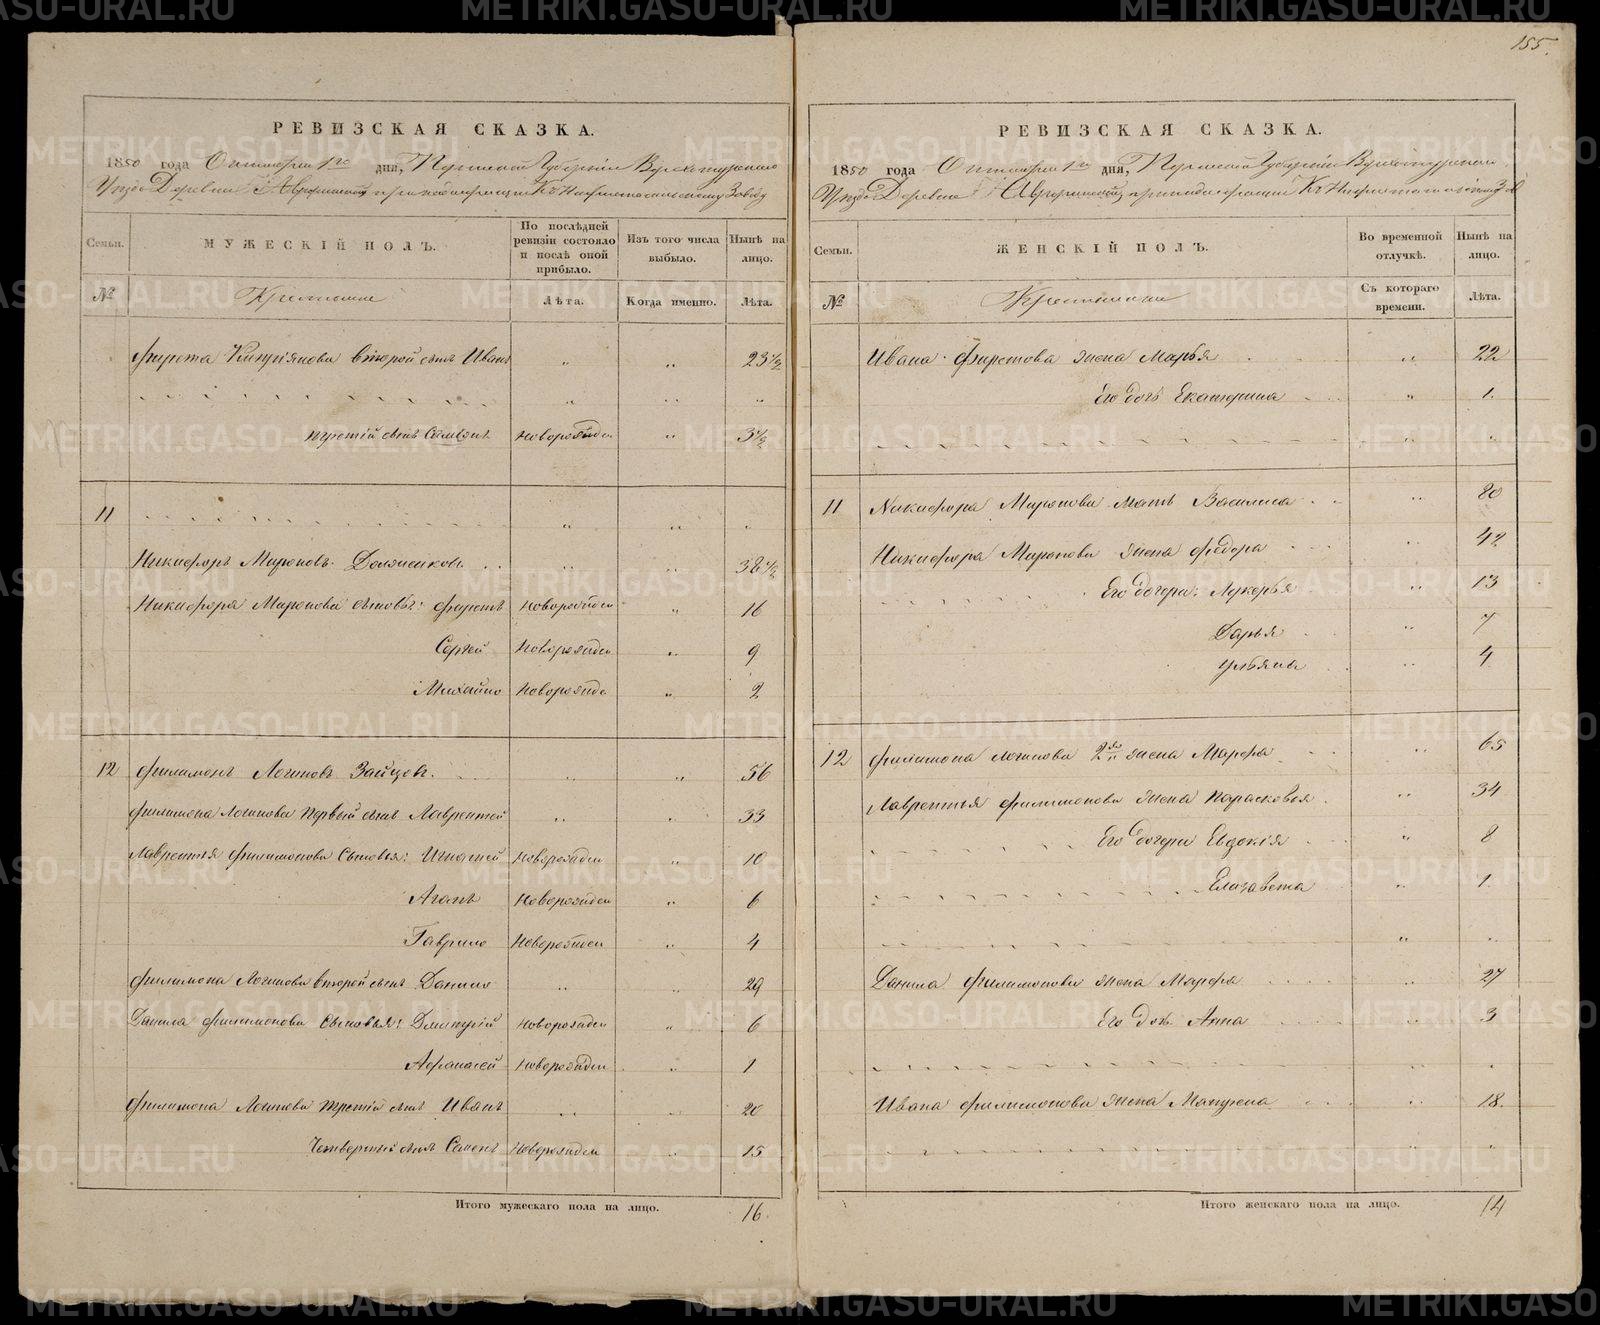 155.
РЕВИЗСКАЯ СКАЗКА.
1850 года Октября 1го дня, Пермской Губернiи Верхотурскаго
Уѣзда Деревни принадлежащей Къ Заводу
Семьи.
МУЖЕСКIЙ ПОЛЪ.
По послѣдней ревизiи состояло и послѣ оной прибыло.
Изъ того числа выбыло.
Нынѣ на лицо.
№
Крестьяне
Лѣта.
Когда именно.
Лѣта.
Фирста второй сынъ Иванъ " " 23 1/2
третiй сынъ новорожден " 3 1/2
11
Никифоръ Мироновъ Долженковъ " " 38 1/2
Никифора Миронова сыновья: Фирстъ новорожден " 16
Сергей новорожден " 9
Михайло новорожде " 2
12 Филимонъ Логиновъ Зайцовъ " " 56
Филимона Логинова первый сынъ Лаврентей " " 33
Лаврентья Филимонова Сыновья: Игнатей новорожден " 10
Агапъ новорожден " 6
Гаврило новорожден " 4
Филимона Логинова второй сынъ Данило " " 29
Данила Филимонова Сыновья: Дмитрiй новорожден " 6
Афанасей новорожден " 1
Филимона Логинова третiй сынъ Иванъ " " 20
Четвертый сынъ Семенъ новорожден " 15
Итого мужескаго пола на лицо. 16.
РЕВИЗСКАЯ СКАЗКА.
1850 года Октября 1го дня, Пермской Губернiи Верхотурскаго
Уѣзда Деревни принадлежащей Къ
Семьи.
ЖЕНСКIЙ ПОЛЪ.
Во временной отлучкѣ.
Нынѣ на лицо.
№
Крестьяне
Съ котораго времени.
Лѣта.
Ивана Фирстова жена Марья " 22
Его дочь Екатерина " 1.
11 Никифора Миронова мать Василиса " 80
Никифора Миронова жена Федора " 42
Его дочери: Лукерья " 13
Дарья " 7
Ульяна " 4
12 Филимона Логинова 2я жена Марфа " 65
Лаврентья Филимонова жена Парасковья " 34
Его дочери Евдокiя " 8
Елизавета " 1.
Данила Филимонова жена Марфа " 27
Его дочь Анна " 3
Ивана Филимонова жена Матрена " 18.
Итого женскаго пола на лицо. 14
METRIKI.GASO-URAL.RU